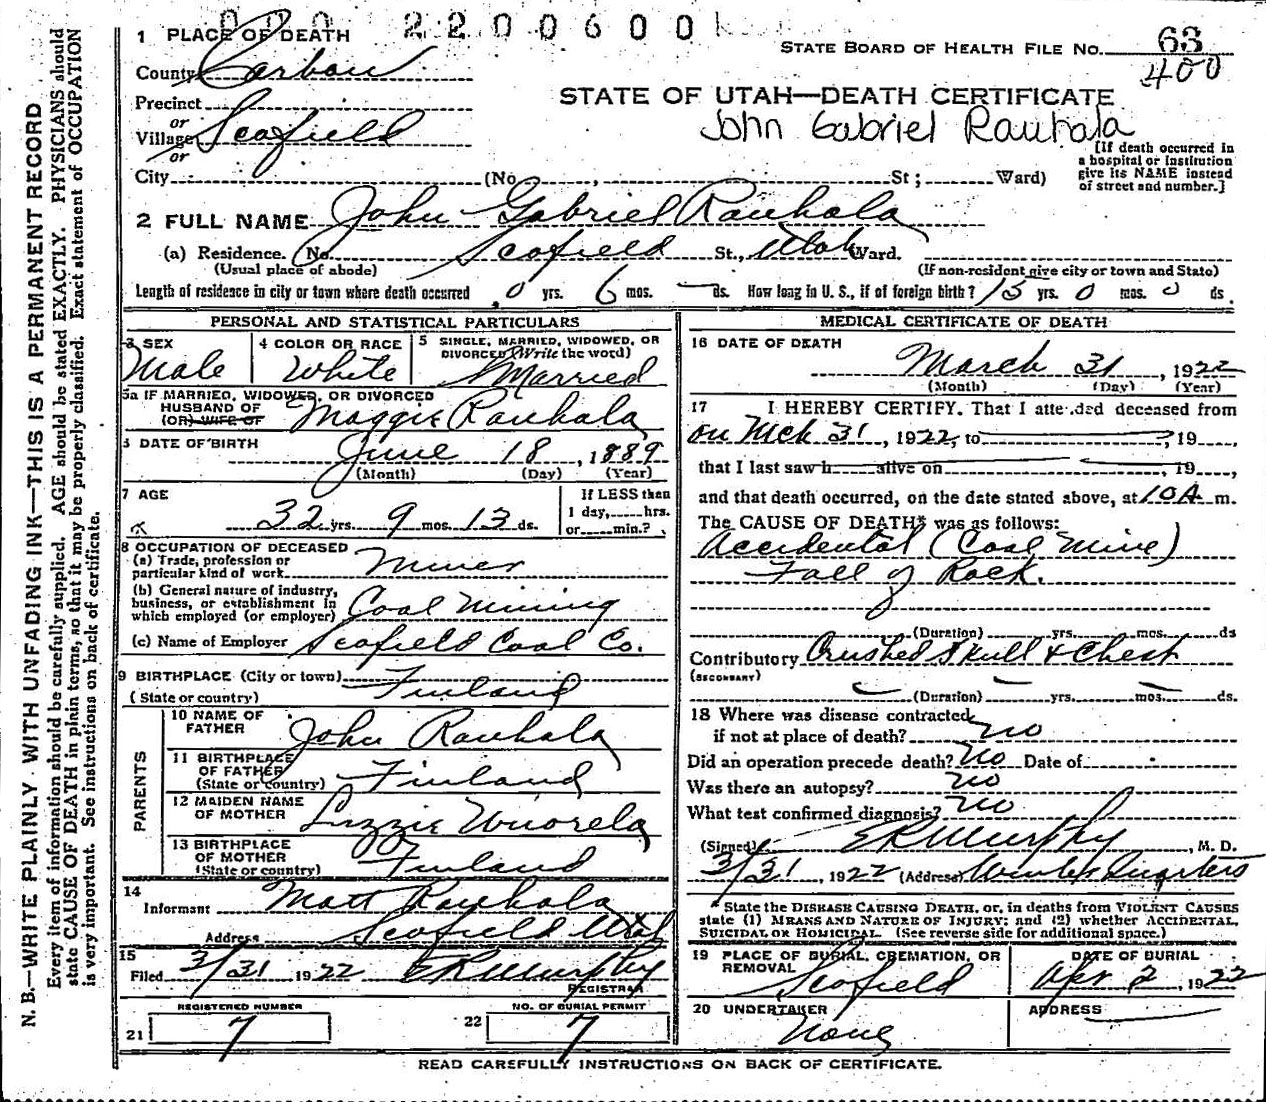 000 2200600
1 PLACE OF DEATH
STATE BOARD OF HEALTH FILE No. 63
400
County Carbon
STATE OF UTAH—DEATH CERTIFICATE
Precinct
or
John Gabriel Rauhala
Village Scofield
or
[If death occurred in
a hospital or institution
give its NAME instead
of street and number.]
City (No , St ; Ward)
2 FULL NAME John Gabriel Rauhala
(a) Residence. No. Scofield St., Utah Ward.
(Usual place of abode) (If non-resident give city or town and State)
Length of residence in city or town where death occurred 0 yrs. 6 mos. — ds. How long in U. S., if of foreign birth? 15 yrs. 0 mos. 0 ds.
PERSONAL AND STATISTICAL PARTICULARS
3 SEX
Male
4 COLOR OR RACE
White
5 SINGLE, MARRIED, WIDOWED, OR
DIVORCED (Write the word)
Married
5a IF MARRIED, WIDOWED, OR DIVORCED
HUSBAND OF
(OR) WIFE OF Maggie Rauhala
6 DATE OF BIRTH
June 18, 1889
(Month) (Day) (Year)
7 AGE
32 yrs. 9 mos. 13 ds.
If LESS than
1 day, hrs.
or min.?
8 OCCUPATION OF DECEASED
(a) Trade, profession or
particular kind of work Miner
(b) General nature of industry,
business, or establishment in
which employed (or employer) Coal Mining
(c) Name of Employer Scofield Coal Co.
9 BIRTHPLACE (City or town)
(State or country) Finland
PARENTS
10 NAME OF
FATHER John Rauhala
11 BIRTHPLACE
OF FATHER
(State or country) Finland
12 MAIDEN NAME
OF MOTHER Lizzie Wuorela
13 BIRTHPLACE
OF MOTHER
(State or country) Finland
14
Informant Matt Rauhala
Address Scofield Utah
15
Filed 3/31 1922 E R Murphy
REGISTRAR
REGISTERED NUMBER
21 7
NO. OF BURIAL PERMIT
22 7
MEDICAL CERTIFICATE OF DEATH
16 DATE OF DEATH
March 31, 1922
(Month) (Day) (Year)
17 I HEREBY CERTIFY. That I attended deceased from
on Mch 31, 1922, to , 19 ,
that I last saw h alive on , 19 ,
and that death occurred, on the date stated above, at 10 A m.
The CAUSE OF DEATH* was as follows:
Accidental (Coal Mine)
Fall of Rock.
(Duration) yrs. mos. ds
Contributory Crushed Skull & Chest
(SECONDARY)
(Duration) yrs. mos. ds.
18 Where was disease contracted
if not at place of death? no
Did an operation precede death? No Date of
Was there an autopsy? no
What test confirmed diagnosis? no
(Signed) E R Murphy, M. D.
3/31, 1922 (Address) Winter Quarters
*State the DISEASE CAUSING DEATH, or, in deaths from VIOLENT CAUSES
state (1) MEANS AND NATURE OF INJURY; and (2) whether ACCIDENTAL,
SUICIDAL OR HOMICIDAL. (See reverse side for additional space.)
19 PLACE OF BURIAL, CREMATION, OR
REMOVAL
Scofield
DATE OF BURIAL
Apr 2, 1922
20 UNDERTAKER
None
ADDRESS
READ CAREFULLY INSTRUCTIONS ON BACK OF CERTIFICATE.
N. B.—WRITE PLAINLY WITH UNFADING INK—THIS IS A PERMANENT RECORD
Every item of information should be carefully supplied. AGE should be stated EXACTLY. PHYSICIANS should
state CAUSE OF DEATH in plain terms, so that it may be properly classified. Exact statement of OCCUPATION
is very important. See instructions on back of certificate.